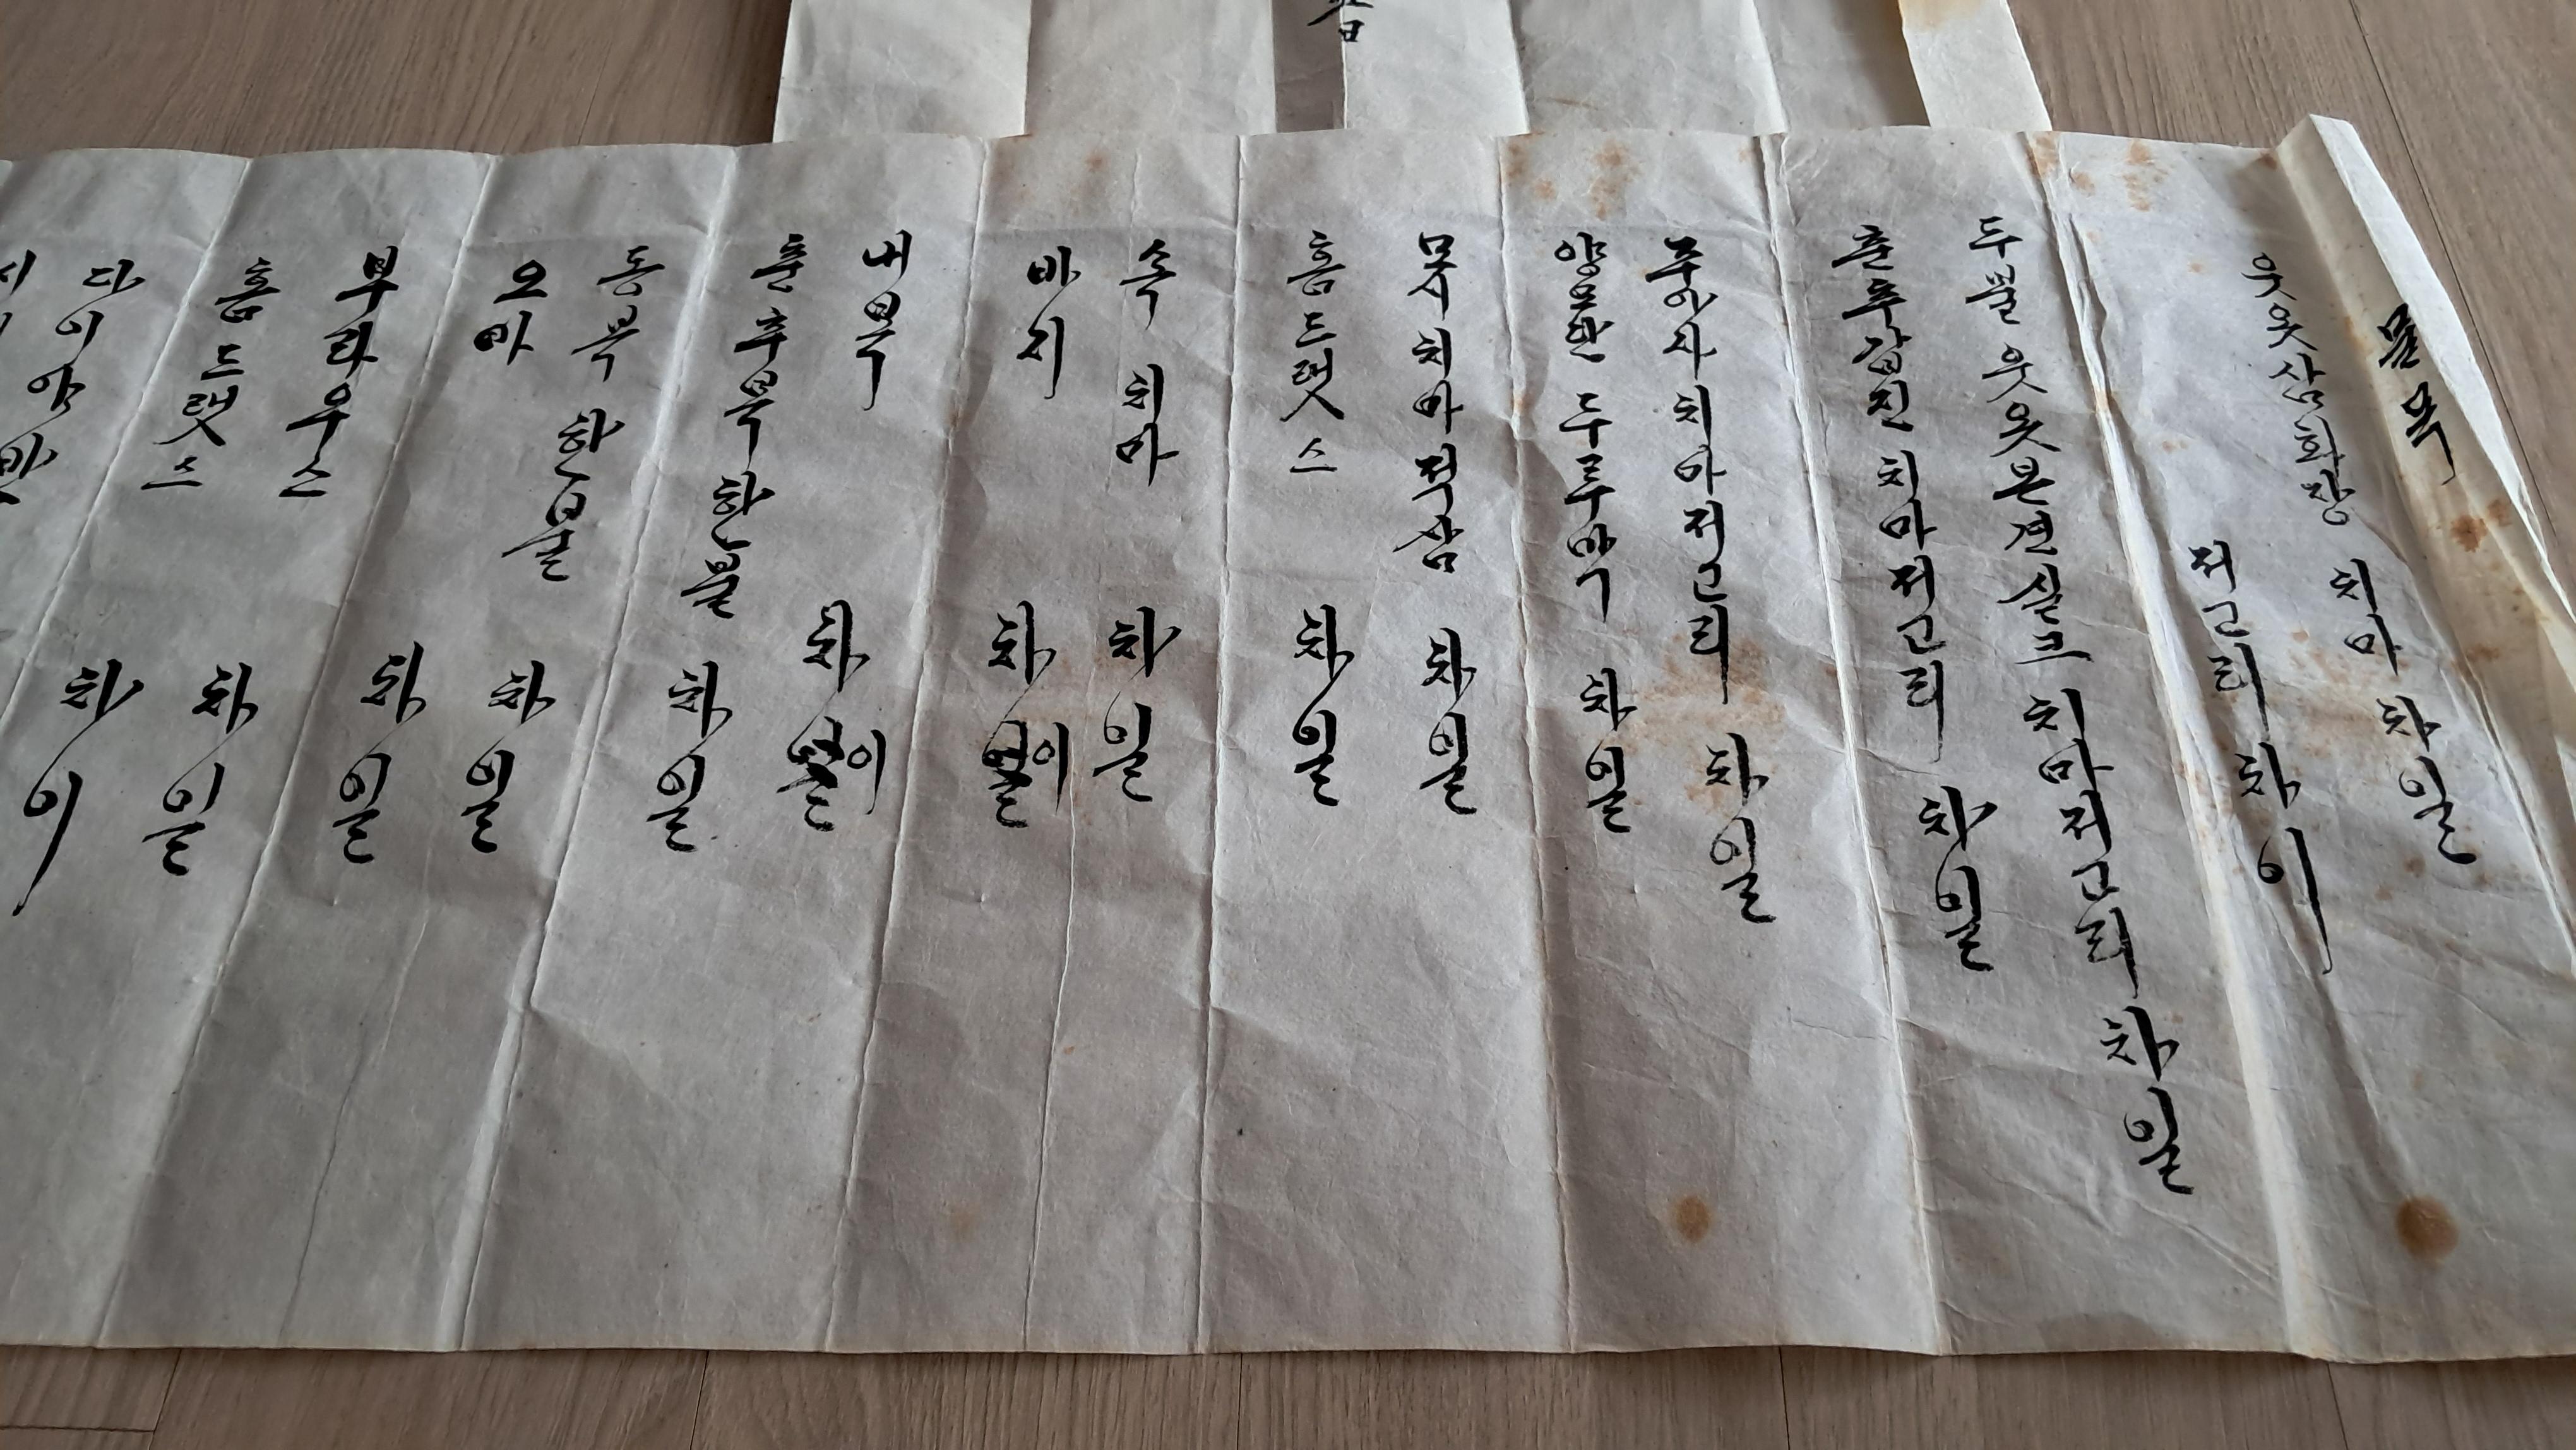 물목
웃옷삼회장 치마 차 일
저고리 차 이
두불 웃옷본견실크 치마저고리 차 일
춘추갑진 치마저고리 차 일
주아사치마저고리 차 일
양단 두루막 차 일
모시치마적삼 차 일
홈드랫스 차 일
속치마 차 일
바지 차 이
내복 차 이
춘추복 한불 차 일
동복 한불
오바 차 일
부라우스 차 일
홈드랫스 차 일
다이야반 차 이